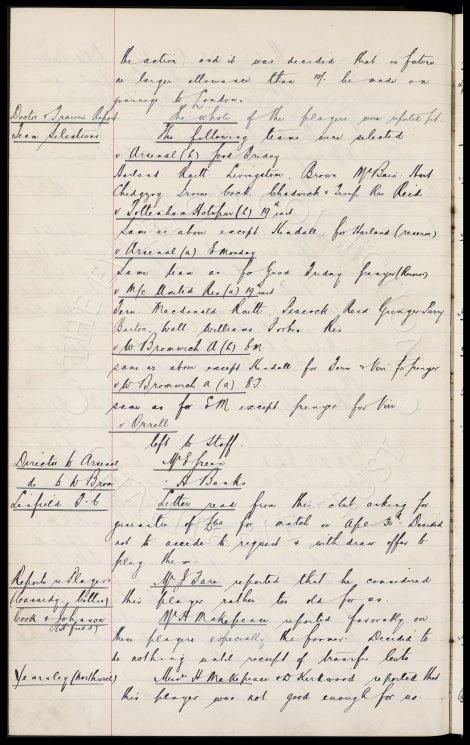 the action and it was decided that in future
no larger allowance than 10/- be made on
journeys to London.
Doctor & Trainers Report The whole of the players were reported fit.
Team Selections The following teams were selected
v Arsenal (h) Good Friday
Harland Raitt Livingstone Brown McBain Hart
Chedgzoy Irvine Cock Chadwick & Troup Res Reid
v Tottenham Hotspur (h) 19th inst
same as above except Kendall for Harland (reserve)
v Arsenal (a) E Monday
Same team as for Good Friday (Reserve)
v M/c United Res (a) 19th inst
Fern Macdonald Raitt Peacock Reid Grenyer Parry
Barton Wall Williams Forbes Res
v W Bromwich A (h) EM
same as above except Kendall for Fern & Virr for Grenyer
v W Bromwich A (a) ET
same as for EM except Grenyer for Virr
v Orrell
left to Staff.
Director to Arsenal Mr E Green
do to W Brom " A Banks
Linfield F.C Letter read from this club asking for
guarantee of £60 for match on Apl 30. Decided
not to accede to request & withdraw offer to
play them.
Reports re Players Mr J Fare reported that he considered
(Cassidy, Celtic) this player rather too old for us.
Cook & Johnson Mr H Makepeace reported favorably on
these players especially the former. Decided to
do nothing until receipt of transfer lists
Yearsley (Northwich) Messrs H Makepeace & D Kirkwood reported that
this player was not good enough for us.